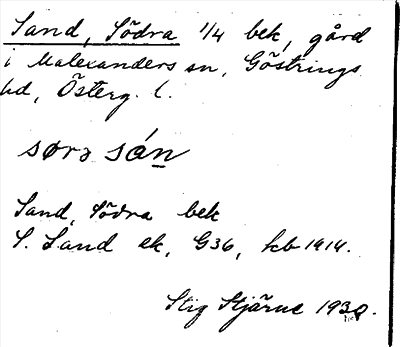 Sand, Södra 1/4 bek, gård
i Malexanders sn, Göstrings
hd, Österg. l.
sørə sán
Sand, Södra bek
S. Sand ek, G36, kb 1914.
Stig Stjärne 1930.